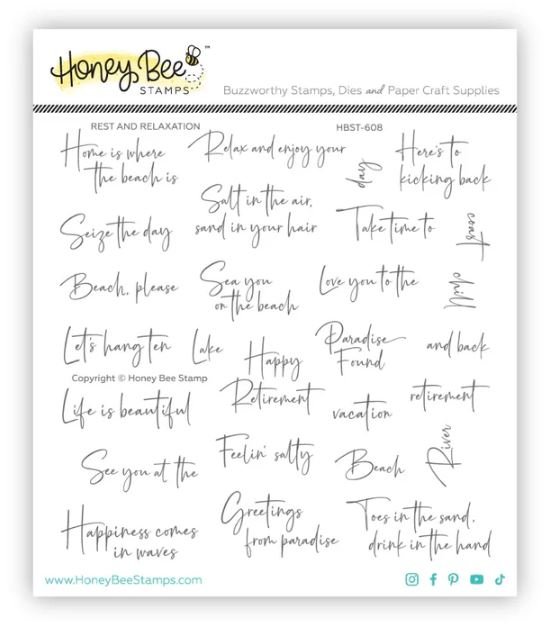 Honey Bee
STAMPS™
Buzzworthy Stamps, Dies and Paper Craft Supplies
REST AND RELAXATION
HBST-608
Home is where
the beach is
Relax and enjoy your
day
Here's to
kicking back
Seize the day
Salt in the air,
sand in your hair
Take time to
coast
Beach, please
Sea you
on the beach
Love you to the
chill
Let's hang ten
Lake
Happy
Paradise
Found
and back
Copyright © Honey Bee Stamps
Life is beautiful
Retirement
vacation
retirement
See you at the
Feelin' salty
Beach
River
Happiness comes
in waves
Greetings
from paradise
Toes in the sand,
drink in the hand
www.HoneyBeeStamps.com